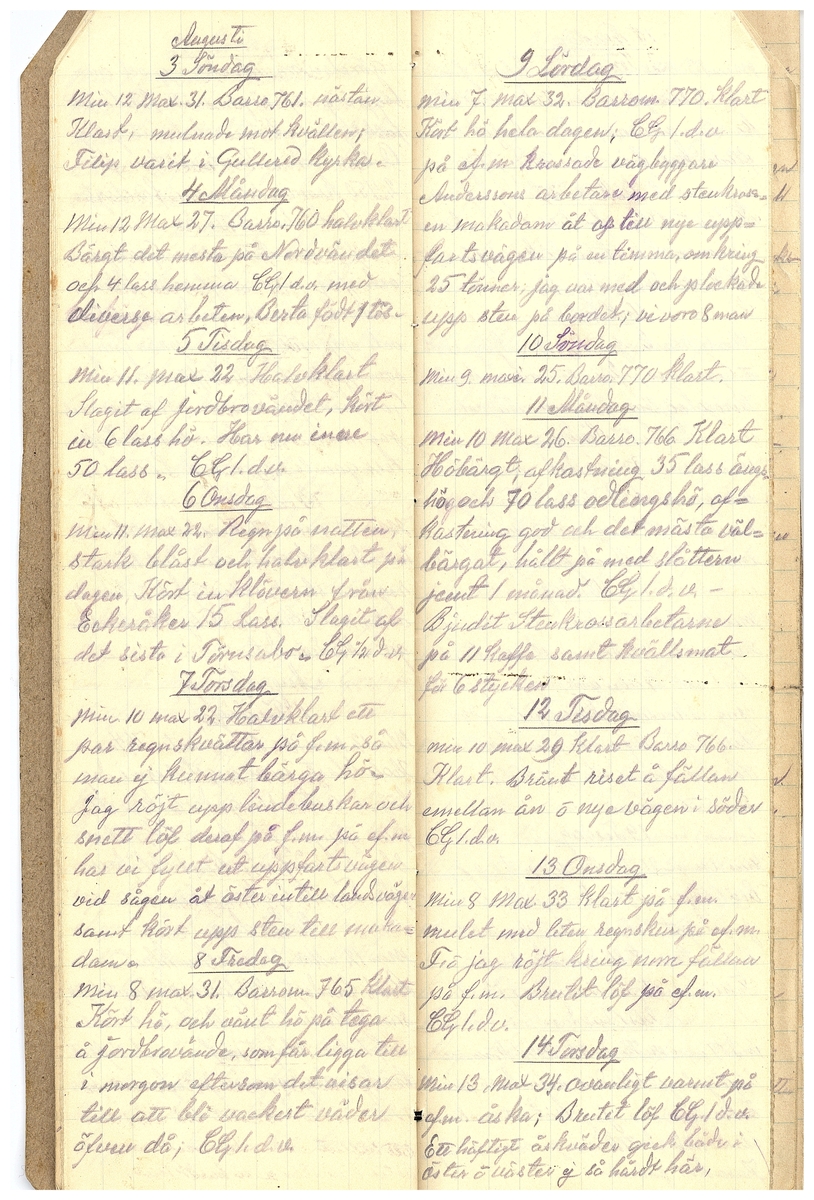 Augusti
3 Söndag
Min 12 Max. 31. Barro. 761. nästan
Klart, mulnade mot kvällen;
Filip varit i Gullered kyrka.
4 Måndag
Min 12 Max 27. Barro. 760 halvklart
Bärgt det mesta på Nordvändet
och 4 lass hemma CG 1 d.v. med
diverse arbeten, Berta född 1 tös.
5 Tisdag
Min 11. Max 22 Halvklart
Slagit af Jordbrovändet, kört
in 6 lass hö. Har nu inne
50 lass. CG 1. d.v.
6 Onsdag
Min 11. Max 22. Regn på natten,
stark blåst och halvklart på
dagen Kört in klövern från
Ekeråker 15 Lass. Slagit af
det sista i Törnsabo. CG 1/2 d.v.
7 Torsdag
Min 10 max 22 Halvklart ett
par regnskvättar på f.m. så
man ej kunnat bärga hö.
Jag röjt upp lindebuskar och
snett löf deraf på f.m. på ef.m.
har vi fyllt ut uppfartsvägen
vid sågen åt öster intill landsvägen
samt kört upp sten till maka=
dam. 8 Fredag
Min 8 max. 31. Barrom. 765 klart
Kört hö, och vänt hö på tega
å jordbrovände, som får ligga till
i morgon eftersom det visar
till att bli vackert väder
äfven då; CG 1. d.v.
9 Lördag
Min 7. max 32. Barrom. 770. klart
Kört hö hela dagen; CG 1. d.v.
på ef.m krossade vägbyggare
Anderssons arbetare med stenkross=
en makadam åt oss till nye upp=
fartsvägen på en timma, omkring
25 tönner, jag var med och plockade
upp sten på bordet; vi voro 8 man
10 Söndag
Min 9. max. 25. Barro. 770 klart.
11 Måndag
Min 10 Max 26. Barro. 766 Klart
Höbärgt; afkastning 35 lass ängs
hö och 70 lass odlingshö, af=
kastning god och det mästa väl=
bärgat, hållt på med slåttern
jemt 1 månad. CG 1. d.v. –
Bjudit Stenkrossarbetarne
på 11 kaffe samt kvällsmat
för 6 stycken
12 Tisdag
Min 10 max 29 klart Barro 766.
Klart. Bränt riset å fällan
emellan ån o nye vägen i söder
CG 1. d.v.
13 Onsdag
Min 8 Max 33 klart på f.m.
mulet med liten regnskur på ef.m.
jag röjt kring nörr fällan
på f.m. Brutit löf på ef.m.
CG 1. d.v.
14 Torsdag
Min 13 Max 34. ovanligt varmt på
ef.m. åska; Brutit löf CG 1 d.v.
Ett häftigt åskväder geck både i
öster o väster ej så hårdt här,